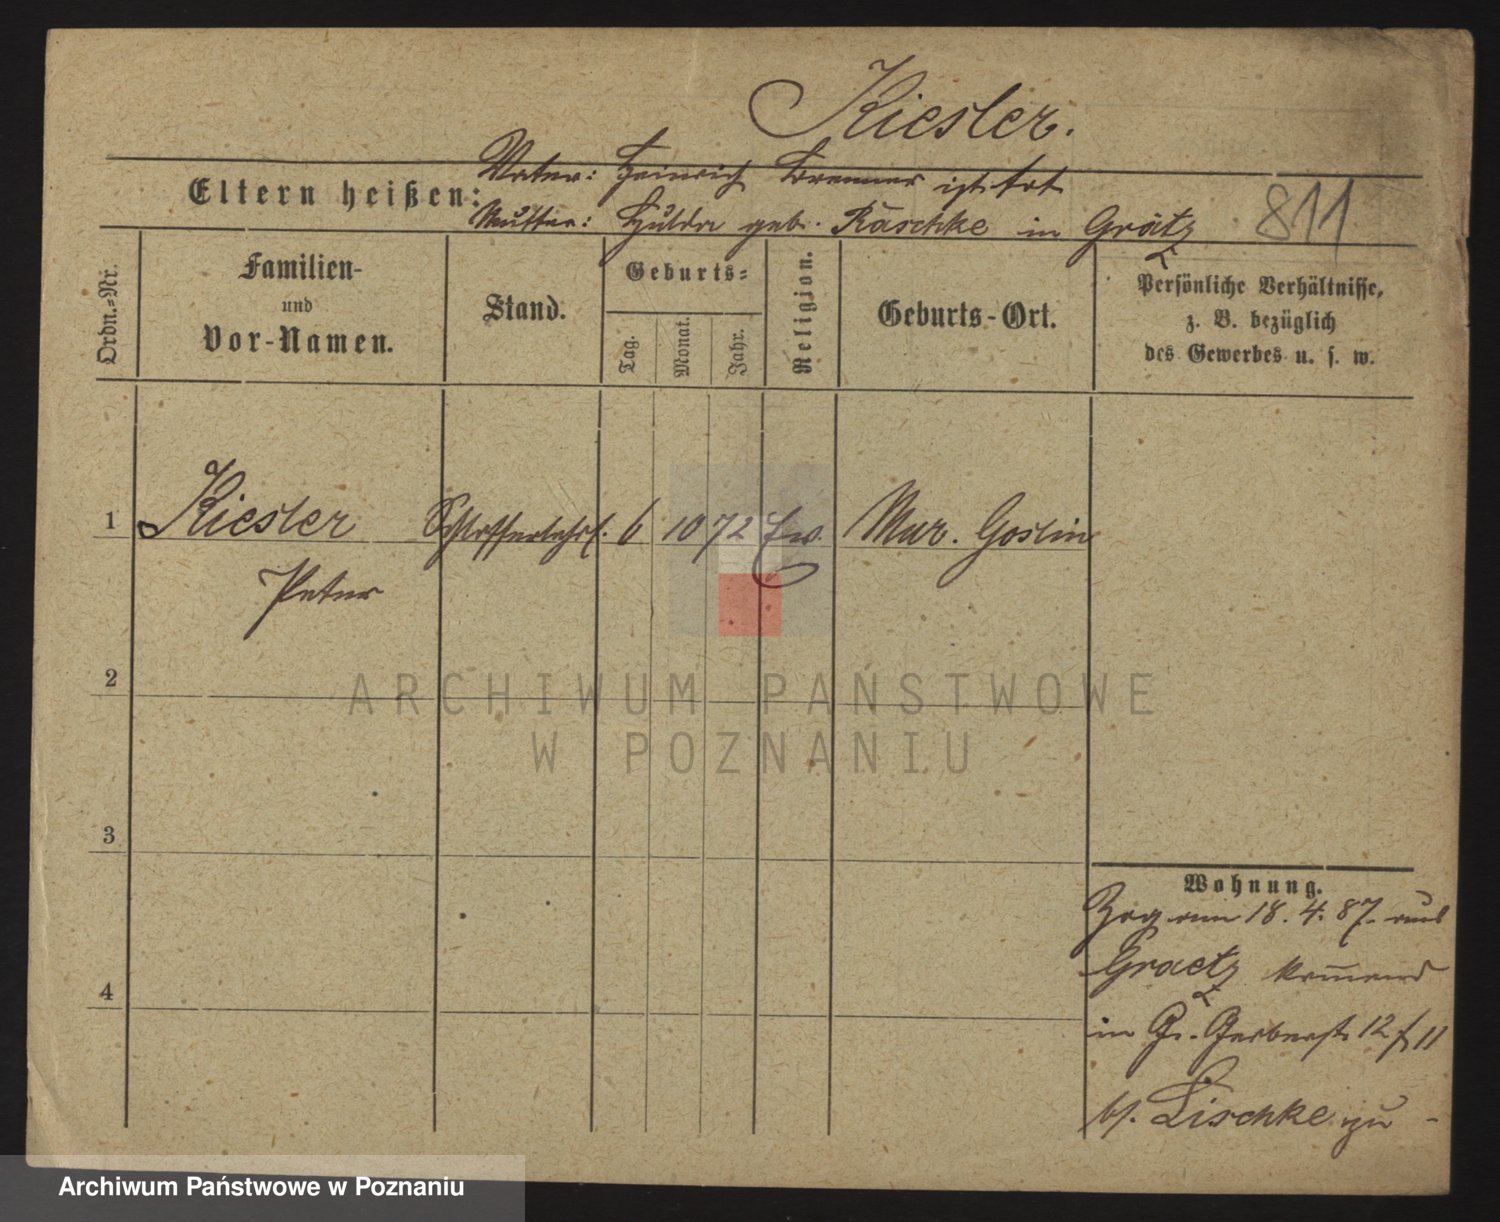 Kiesler.
Vater: Heinrich Brenner ist tot
Eltern heißen:
Mutter: Hulda geb. Räschke in Grätz
811
Ordn.-Nr.
Familien-
und
Vor-Namen.
Stand.
Geburts-
Tag.
Monat.
Jahr.
Religion.
Geburts-Ort.
Persönliche Verhältnisse,
z. B. bezüglich
des Gewerbes u. s. w.
1 Kiesler Schlosserlehrl. 6 10 72 Ev. Mur. Goslin
Peter
2
3
4
Wohnung.
Zog am 18. 4. 87. aus
Graetz kommend
in Gr. Gerberst. 12 f 11
bei Lischke zu -
ARCHIWUM PAŃSTWOWE
W POZNANIU
Archiwum Państwowe w Poznaniu